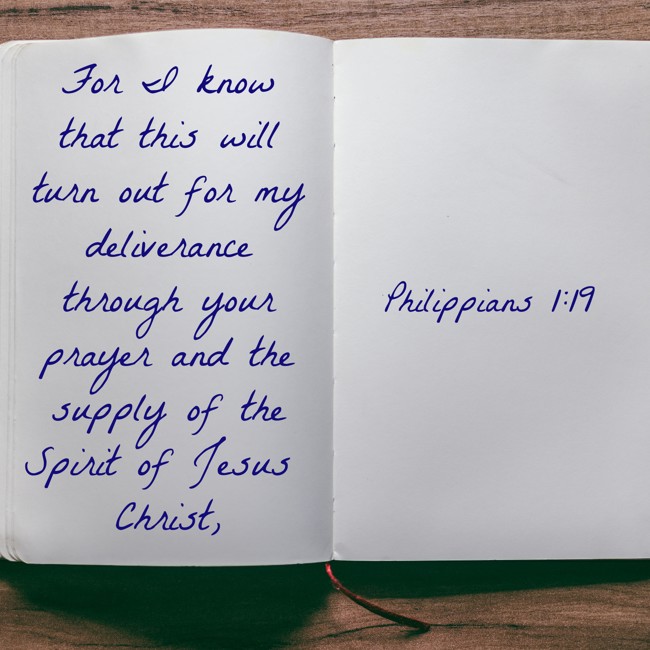 For I know
that this will
turn out for my
deliverance
through your
prayer and the
supply of the
Spirit of Jesus
Christ,
Philippians 1:19